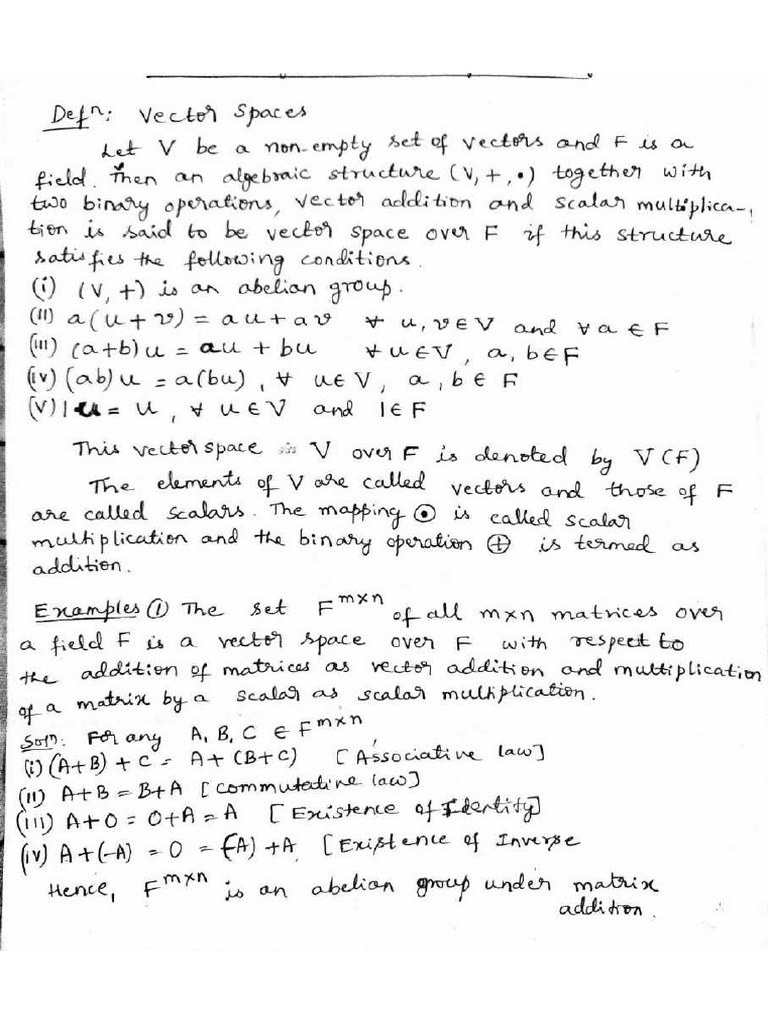 Defⁿ: Vector Spaces
Let V be a non-empty set of vectors and F is a
field. Then an algebraic structure (V, +, •) together with
two binary operations, vector addition and scalar multiplica-
tion is said to be vector space over F if this structure
satisfies the following conditions.
(i) (V, +) is an abelian group.
(II) a(u+v) = au+av ∀ u, v ∈ V and ∀ a ∈ F
(III) (a+b)u = au + bu ∀ u ∈ V, a, b ∈ F
(IV) (ab)u = a(bu), ∀ u ∈ V, a, b ∈ F
(V) 1·u = u, ∀ u ∈ V and 1 ∈ F
This vector space V over F is denoted by V(F)
The elements of V are called vectors and those of F
are called scalars. The mapping ⊙ is called scalar
multiplication and the binary operation ⊕ is termed as
addition.
Examples ① The set F^{m×n} of all m×n matrices over
a field F is a vector space over F with respect to
the addition of matrices as vector addition and multiplication
of a matrix by a scalar as scalar multiplication.
Solⁿ: For any A, B, C ∈ F^{m×n},
(i) (A+B) + C = A + (B+C) [Associative law]
(II) A+B = B+A [Commutative law]
(III) A+0 = 0+A = A [Existence of Identity]
(IV) A+(-A) = 0 = (-A) + A [Existence of Inverse
Hence, F^{m×n} is an abelian group under matrix
addition.